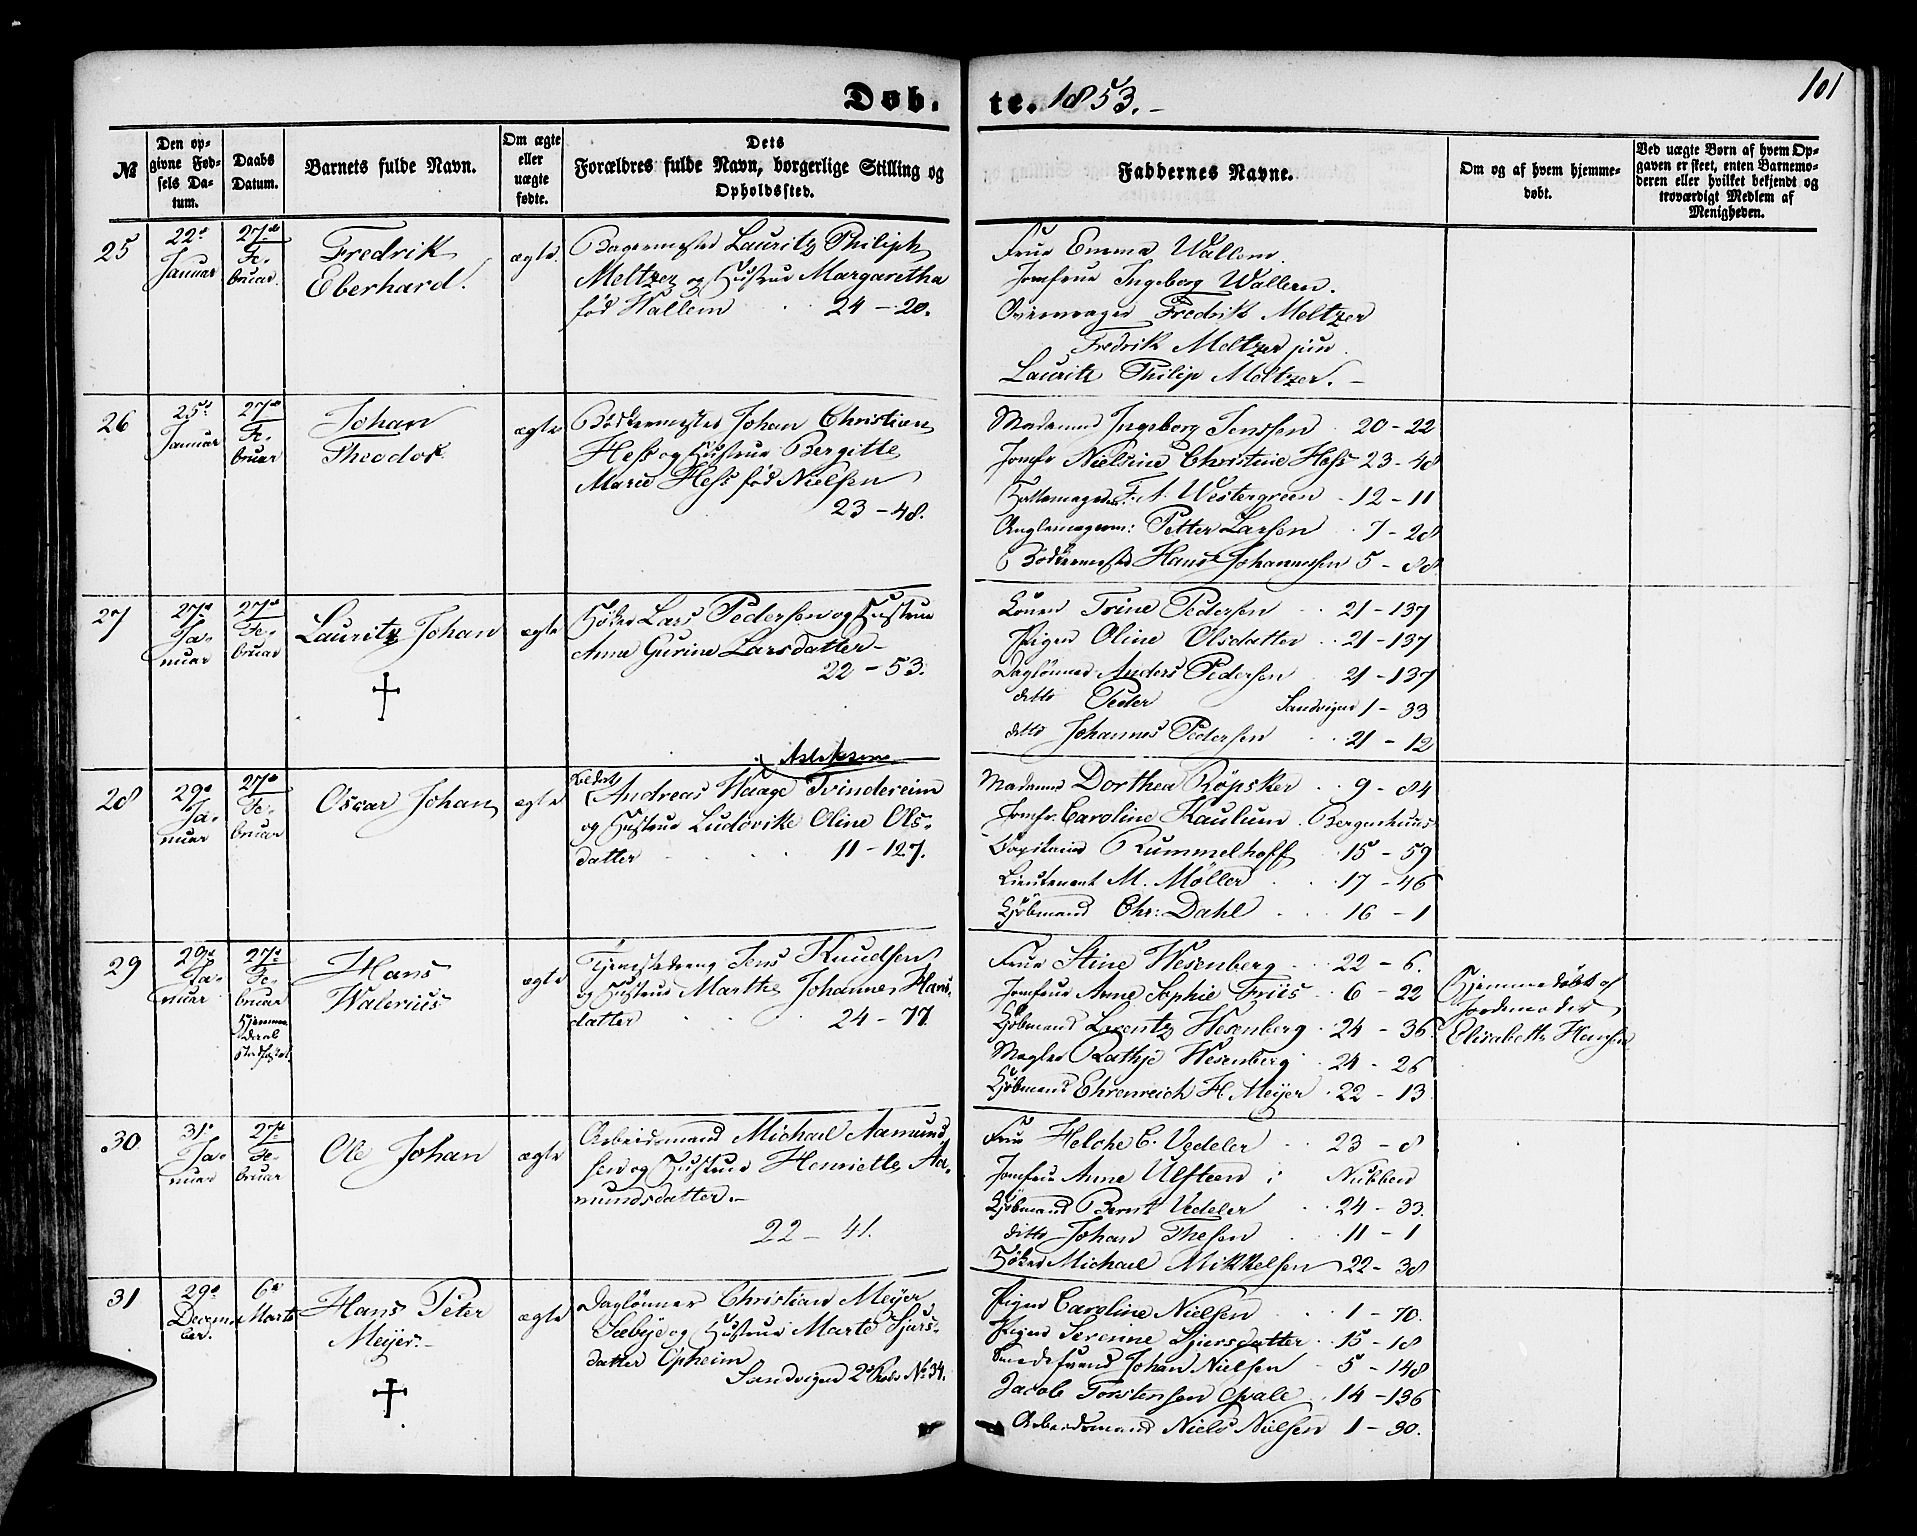 101
Døb.
te. 1853.-
№
Den op-
givne Fød-
sels Da-
tum.
Daabs
Datum.
Barnets fulde Navn.
Om ægte
eller
uægte
fødte.
Dets
Forældres fulde Navn, borgerlige Stilling og
Opholdssted.
Faddernes Navne.
Om og af hvem hjemme-
døbt.
Ved uægte Børn af hvem Op-
gaven er skeet, enten Barnemo-
deren eller hvilket bekjendt og
troværdigt Medlem af
Menigheden.
25
22de
Januar
27de
Fe-
bruar.
Fredrik
Eberhard.
ægte
Bagermester Lauritz Philiph
Meltzer og Hustrue Margaretha
fød Wallem 24-20.
Frue Emma Wallem.
Jomfrue Ingeborg Wallem.
Fredrik Meltzer
Fredrik Meltzer jun.
Lauritz Philip Meltzer.-
26
25de
Januar
27de
Fe-
bruar
Johan
Theodor
ægte
Bødkermester Johan Christian
Hess og Hustrue Bergitte
Marie Hess fød Nielsen
23-48.
Madame Ingeborg Jenssen 20-22
Jomfr Nielsine Christine Hess 23-48
F. A. Westergreen 12-11
Petter Larsen 7-28
Bødkermester Hans Johannessen 5-88
27
27de
Ja-
nuar
27de
Fe-
bruar
Lauritz Johan
ægte
Høker Lars Pedersen og Hustrue
Anne Gurine Larsdatter-
22-53.
Konen Trine Pedersen 21-137
Pigen Oline Olsdatter 21-137
Daglønner Anders Pedersen 21-137
ditto Peder Sandvigen 1-33
ditto Johannes Pedersen 21-12
28
29de
Ja-
nuar
27de
Fe-
bruar
Oscar Johan
ægte
Andreas Haage Tvindereim
og Hustrue Ludovike Oline Ols-
datter 11-127.
Madame Dorthea Röpsker 9-84
Jomfr. Caroline Kaulum Bergenhuus
Capitaine Rummelhoff 15-59
Lieutenant M. Møller 17-46
Kjøbmand Chr: Dahl 16-1
29
29de
Ja-
nuar
27de
Fe-
bruar
Hjemme
daab
stadfæstet
Hans
Walerius
ægte
Tjenestedreng Jens Knudsen
og Hustrue Marthe Johannes Hans-
datter 24-77.
Frue Stine Wesenberg 22-6.
Jomfrue Anne Sophie Friis 6-22
Kjøbmand Lorentz Wesenberg 24-36.
Megler Rathje Wesenberg 24-26
Kjøbmand Ehrenreich H. Meyer 22-13
Hjemmedøbt af
Jordemoder
Elisabeth Hansen
30
31te
Ja-
nuar
27de
Fe-
bruar
Ole Johan
ægte
Arbeidsmand Michael Aamund-
sen og Hustrue Henriette Aa-
mundsdatter.-
22-41.
Frue Helche C. Vedeler 23-8
Jomfrue Anne Ulfsteen i Nubben
Kjøbmand Bernt Vedeler 24-33.
ditto Johan Thesen 11-1
Høker Michael Mikkelsen 22-38
31
29de
Decem-
ber.
6te
Marts
Hans Peter
Meyer.-
ægte
Daglønner Christian Meyer
Sæbye og Hustrue Marte Sjurs-
datter Opheim
Sandvigen 2de Rode No 34.
Pigen Caroline Nielsen 1-70.
Pigen Serenine Sjursdatter 15-18
Smedesvend Johan Nielsen 5-148
Jacob Torstensen Qvale 14-136
Arbeidsmand Niels Nielsen 1-30.